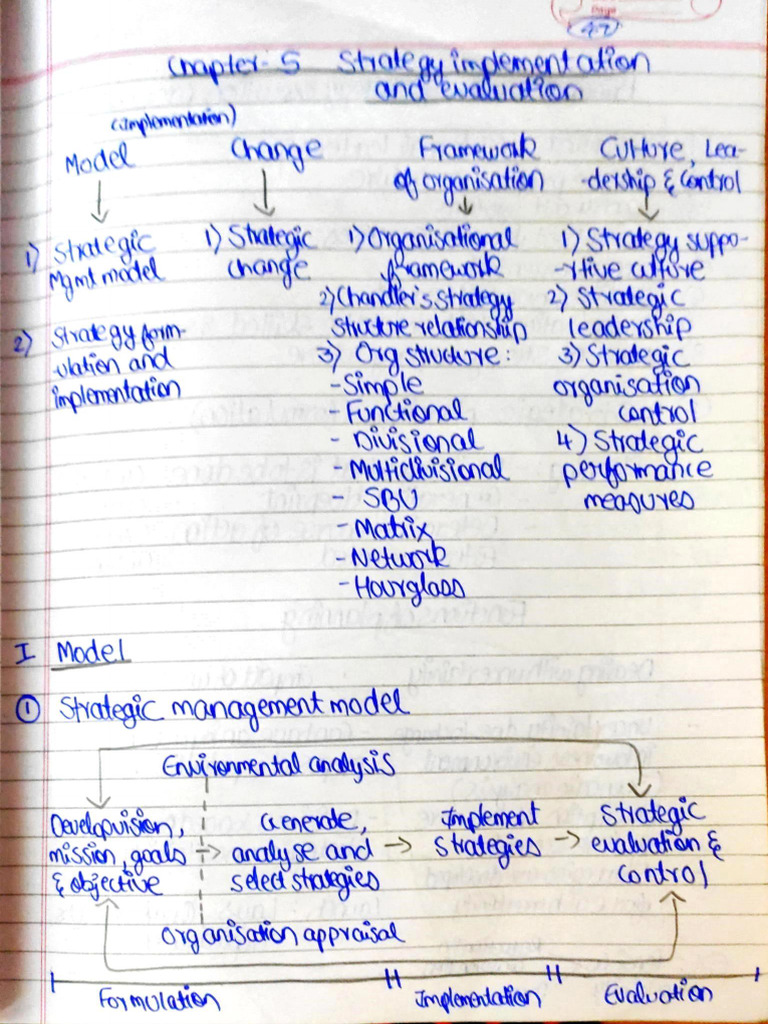 Chapter- 5 Strategy implementation
and evaluation
(implementation)
Model
1) Strategic
Mgmt model
2) Strategy form-
ulation and
implementation
Change
1) Strategic
change
Framework
of organisation
1) Organisational
framework
2) Chandler's strategy
structure relationship
3) Org structure:
- Simple
- Functional
- Divisional
- Multidivisional
- SBU
- Matrix
- Network
- Hourglass
Culture, Lea-
-dership & Control
1) Strategy suppo-
-rtive culture
2) Strategic
leadership
3) Strategic
organisation
control
4) Strategic
performance
measures
I Model
① Strategic management model
Environmental analysis
Develop vision,
mission, goals
& objective
Generate,
analyse and
select strategies
Implement
strategies
Strategic
evaluation &
control
Organisation appraisal
Formulation
Implementation
Evaluation